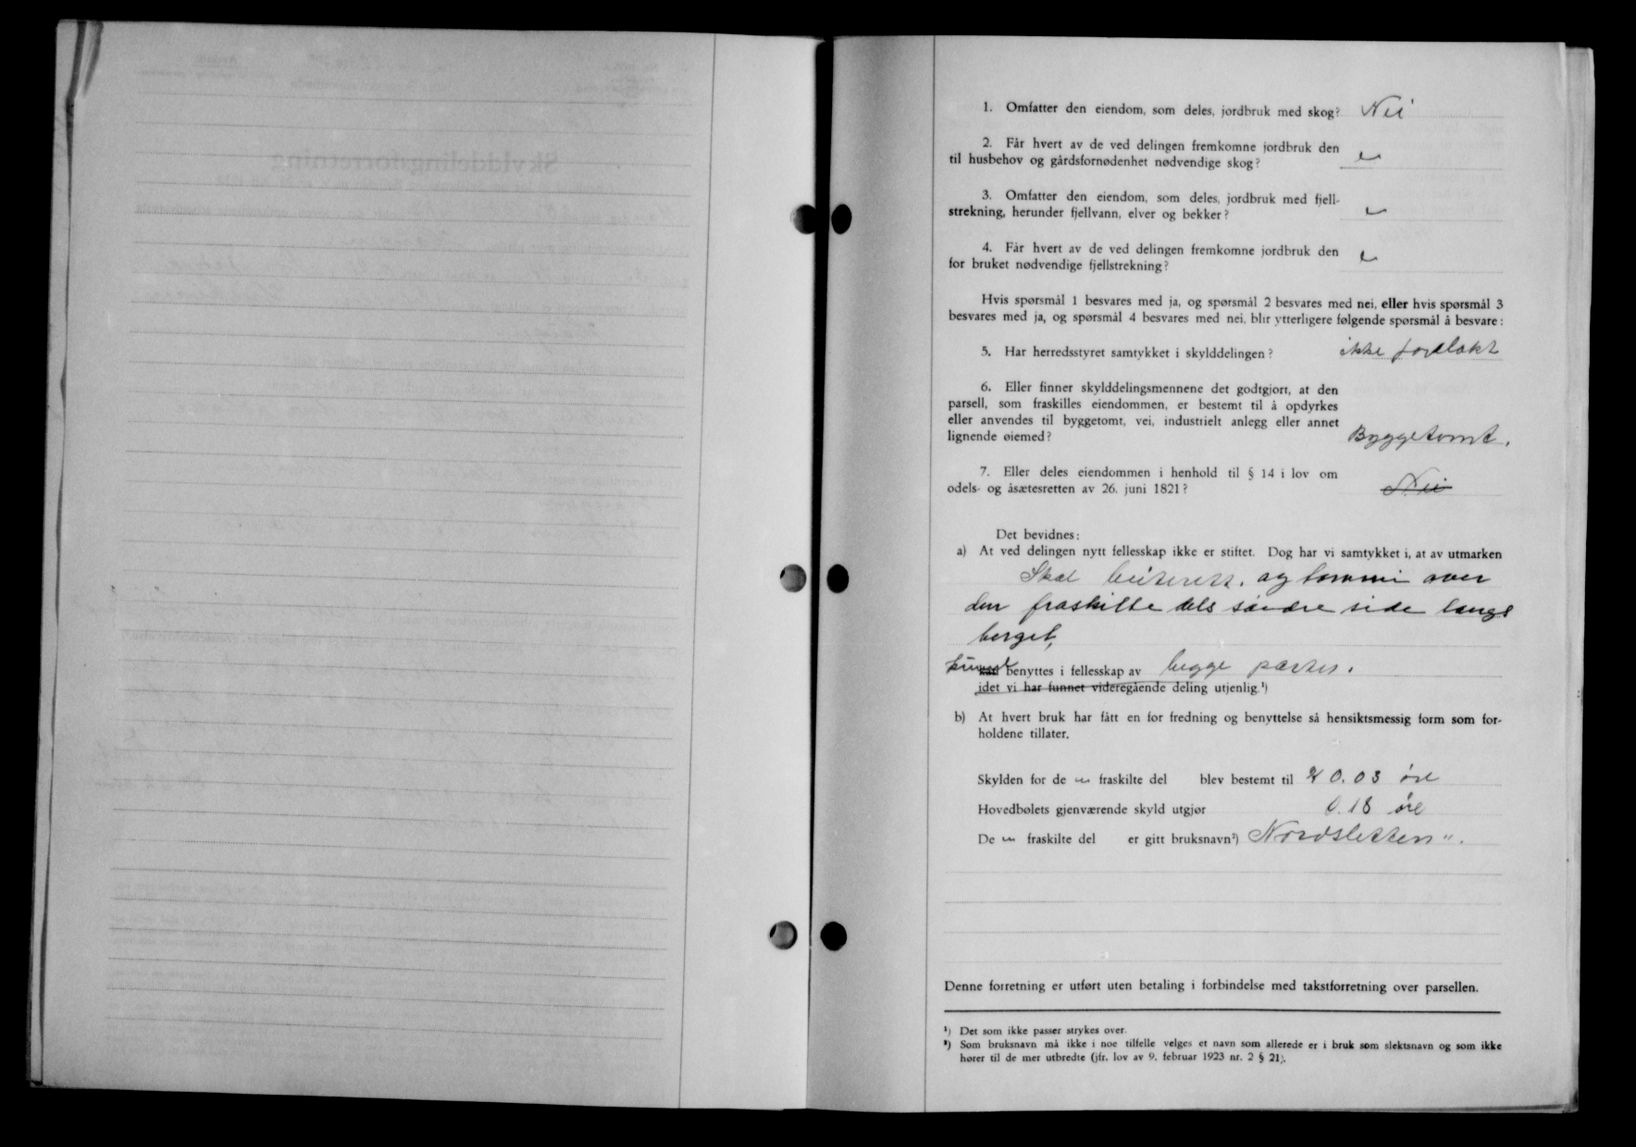 1. Omfatter den eiendom, som deles, jordbruk med skog? Nei
2. Får hvert av de ved delingen fremkomne jordbruk den
til husbehov og gårdsfornødenhet nødvendige skog?
3. Omfatter den eiendom, som deles, jordbruk med fjell-
strekning, herunder fjellvann, elver og bekker?
4. Får hvert av de ved delingen fremkomne jordbruk den
for bruket nødvendige fjellstrekning?
Hvis spørsmål 1 besvares med ja, og spørsmål 2 besvares med nei, eller hvis spørsmål 3
besvares med ja, og spørsmål 4 besvares med nei, blir ytterligere følgende spørsmål å besvare:
5. Har herredsstyret samtykket i skylddelingen? ikke forelakt
6. Eller finner skylddelingsmennene det godtgjort, at den
parsell, som fraskilles eiendommen, er bestemt til å opdyrkes
eller anvendes til byggetomt, vei, industrielt anlegg eller annet
lignende øiemed? Byggetomt.
7. Eller deles eiendommen i henhold til § 14 i lov om
odels- og åsætesretten av 26. juni 1821? Nei
Det bevidnes:
a) At ved delingen nytt fellesskap ikke er stiftet. Dog har vi samtykket i, at av utmarken
Skal beiterett, og over
den fraskilte dels søndre side langs
berget,
benyttes i fellesskap av begge parter.
idet vi har funnet videregående deling utjenlig.¹)
b) At hvert bruk har fått en for fredning og benyttelse så hensiktsmessig form som for-
holdene tillater.
Skylden for de n fraskilte del blev bestemt til 0.03 øre
Hovedbølets gjenværende skyld utgjør 0.18 øre
De n fraskilte del er gitt bruksnavn²) Nordsletten".
Denne forretning er utført uten betaling i forbindelse med takstforretning over parsellen.
¹) Det som ikke passer strykes over.
²) Som bruksnavn må ikke i noe tilfelle velges et navn som allerede er i bruk som slektsnavn og som ikke
hører til de mer utbredte (jfr. lov av 9. februar 1923 nr. 2 § 21).